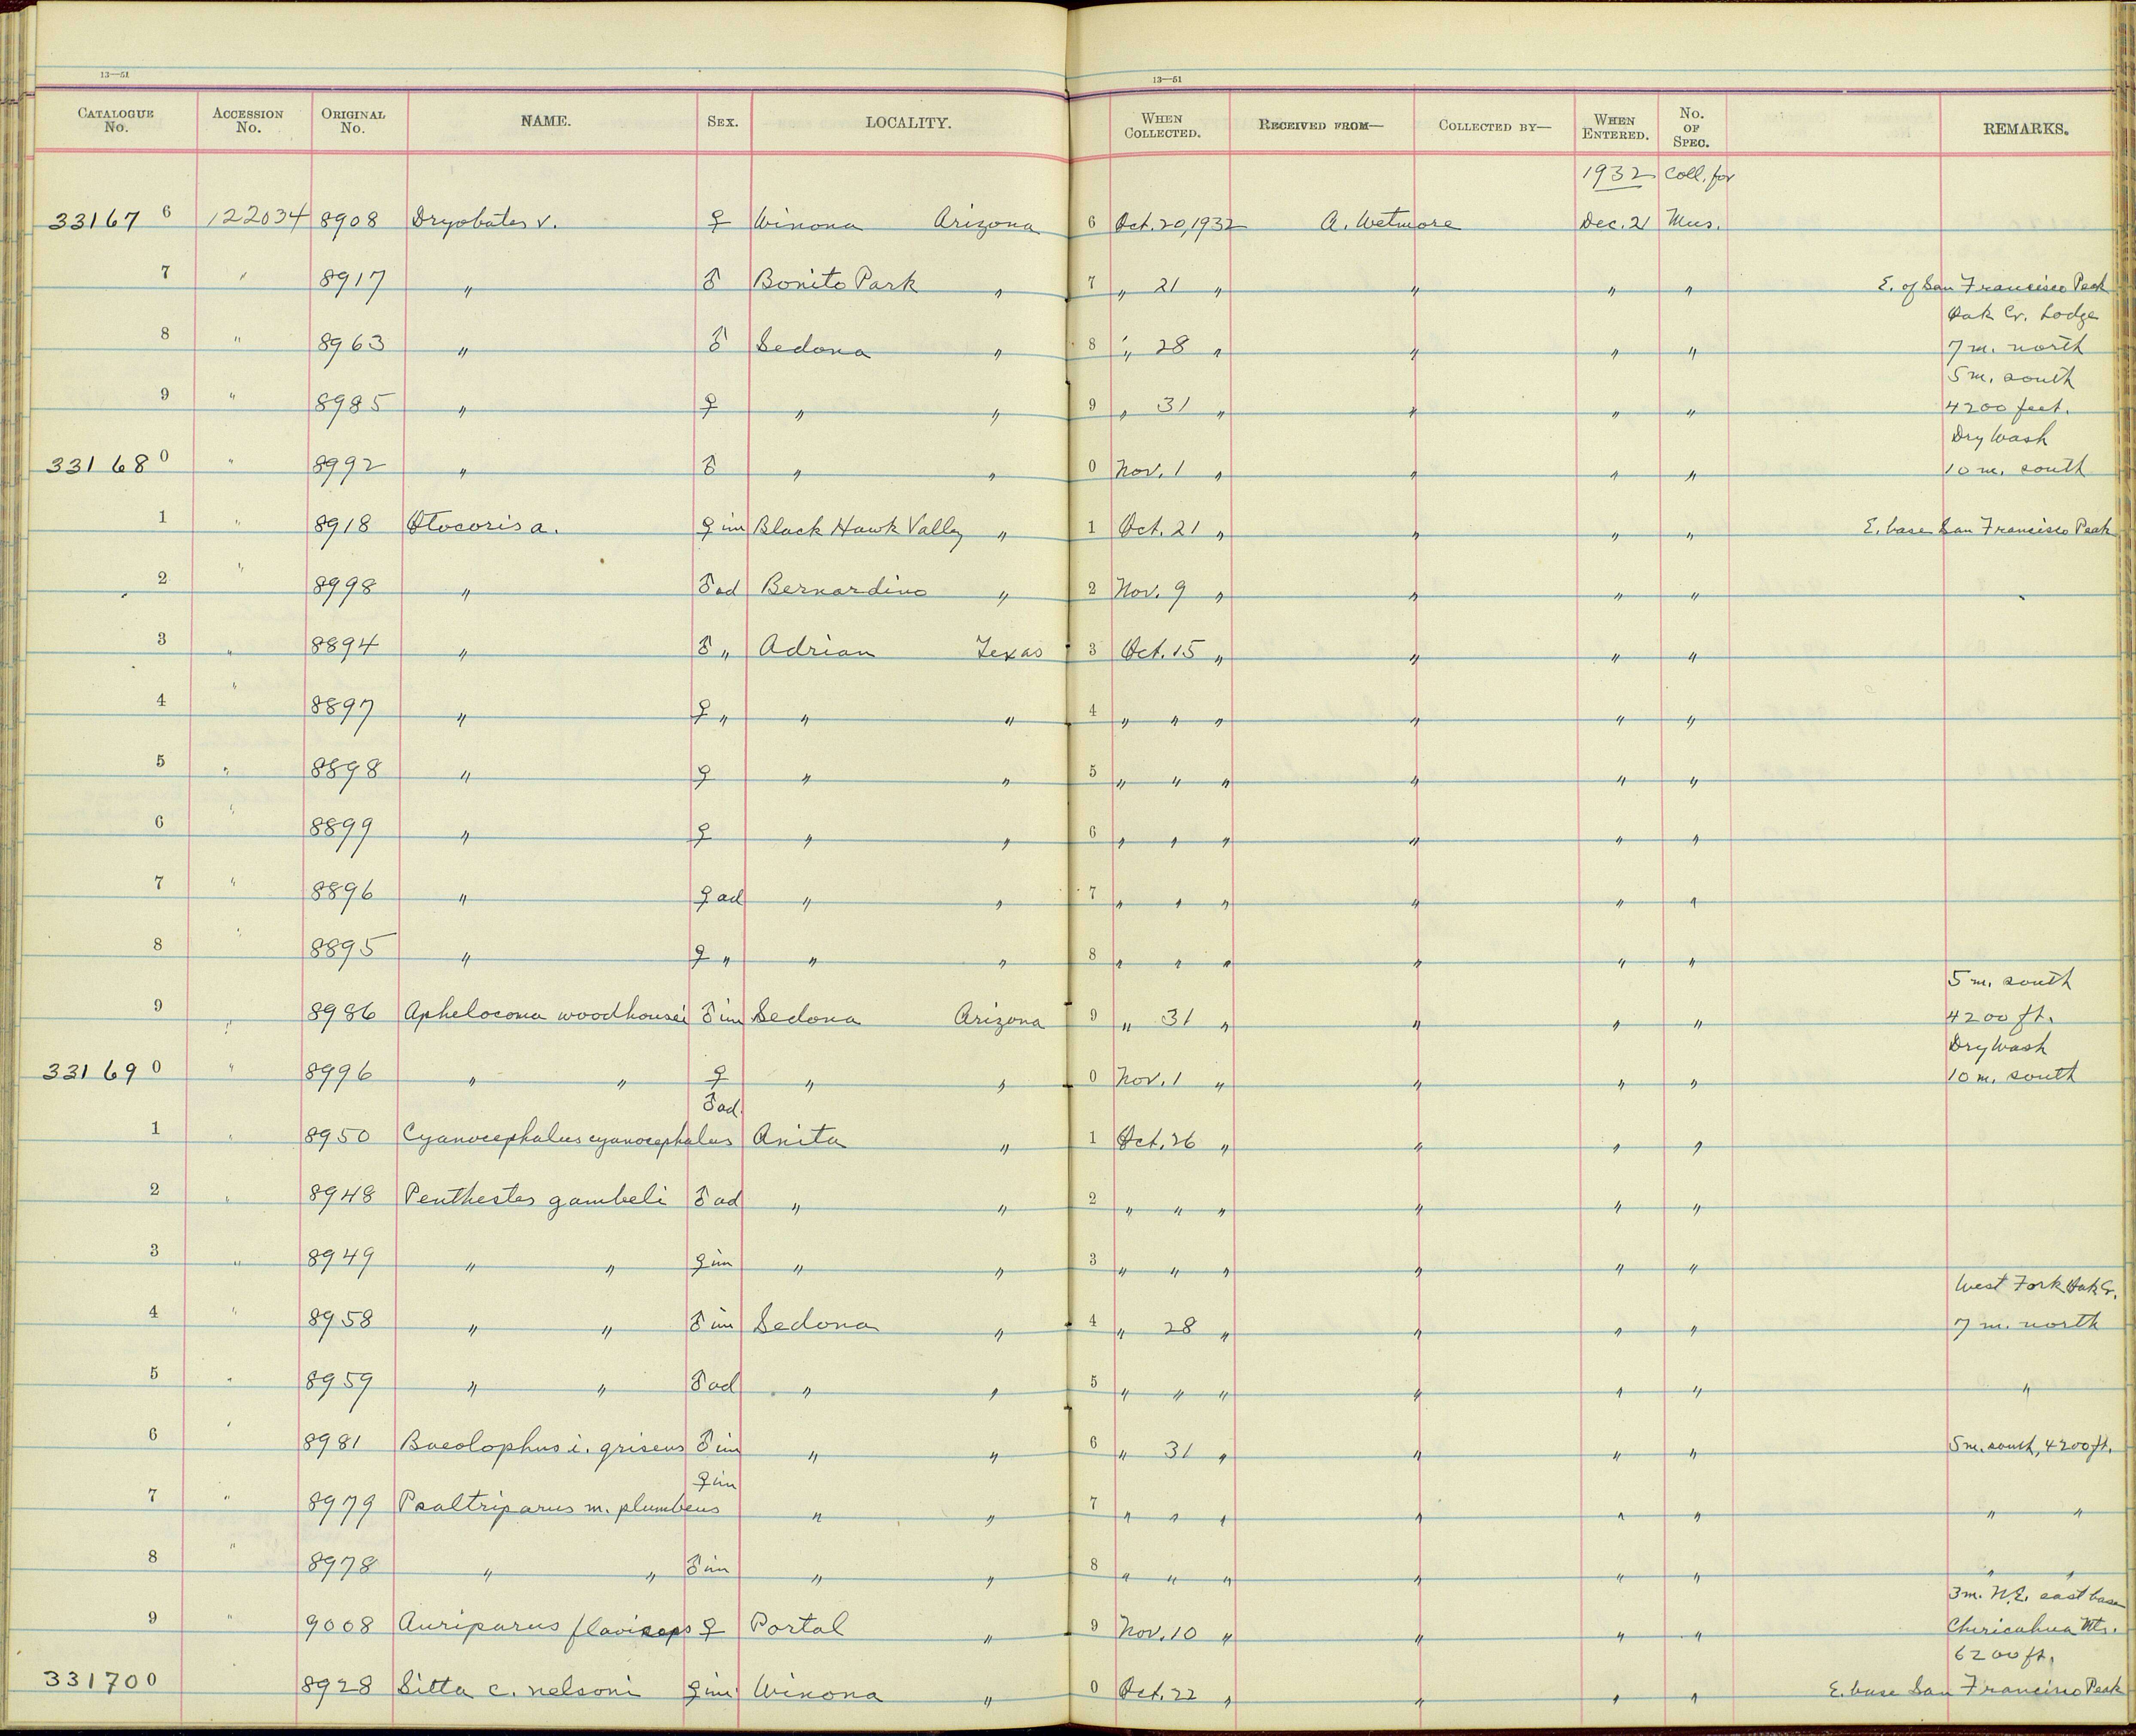 13—51
13—51
CATALOGUE No. ACCESSION No. ORIGINAL No. NAME. SEX. LOCALITY. WHEN COLLECTED. RECEIVED FROM— COLLECTED BY— WHEN ENTERED. No. OF SPEC. REMARKS.
1932 Coll. for
33167 6 122034 8908 Dryobates v. ♀ Winona Arizona 6 Oct. 20, 1932 A. Wetmore Dec. 21 Mus.
7 " 8917 " ♂ Bonito Park " 7 " 21 " " " " E. of San Francisco Peak
Oak Cr. Lodge
8 " 8963 " ♂ Sedona " 8 " 28 " " " " 7 m. north
5 m. south
9 " 8985 " ♀ " " 9 " 31 " " " " 4200 feet.
Dry Wash
33168 0 " 8992 " ♂ " " 0 Nov. 1 " " " " 10 m. south
1 " 8918 Otocoris a. ♀ im Black Hawk Valley " 1 Oct. 21 " " " " E. base San Francisco Peak
2 " 8998 " ♂ ad Bernardino " 2 Nov. 9 " " " "
3 " 8894 " ♂ " Adrian Texas 3 Oct. 15 " " " "
4 " 8897 " ♀ " " " 4 " " " " " "
5 " 8898 " ♀ " " 5 " " " " " "
6 " 8899 " ♀ " " 6 " " " " " "
7 " 8896 " ♀ ad " " 7 " " " " " "
8 " 8895 " ♀ " " " 8 " " " " " "
5 m. south
9 " 8986 Aphelocoma woodhousei ♂ im Sedona Arizona 9 " 31 " " " " 4200 ft.
Dry Wash
33169 0 " 8996 " " ♀ " " 0 Nov. 1 " " " " 10 m. south
♂ ad.
1 " 8950 Cyanocephalus cyanocephalus Anita " 1 Oct. 26 " " " "
2 " 8948 Penthestes gambeli ♂ ad " " 2 " " " " " "
3 " 8949 " " ♀ im " " 3 " " " " " "
West Fork Oak Cr.
4 " 8958 " " ♂ im Sedona " 4 " 28 " " " " 7 m. north
5 " 8959 " " ♂ ad " " 5 " " " " " " "
6 " 8981 Baeolophus i. griseus ♂ im " " 6 " 31 " " " " 5 m. south, 4200 ft.
♀ im
7 " 8979 Psaltriparus m. plumbeus " " 7 " " " " " " " "
8 " 8978 " " ♂ im " " 8 " " " " " " " "
3 m. N.E. east base
9 " 9008 Auriparus flaviceps ♀ Portal " 9 Nov. 10 " " " " Chiricahua Mts.
6200 ft.
33170 0 8928 Sitta c. nelsoni ♀ im Winona " 0 Oct. 22 " " " " E. base San Francisco Peak